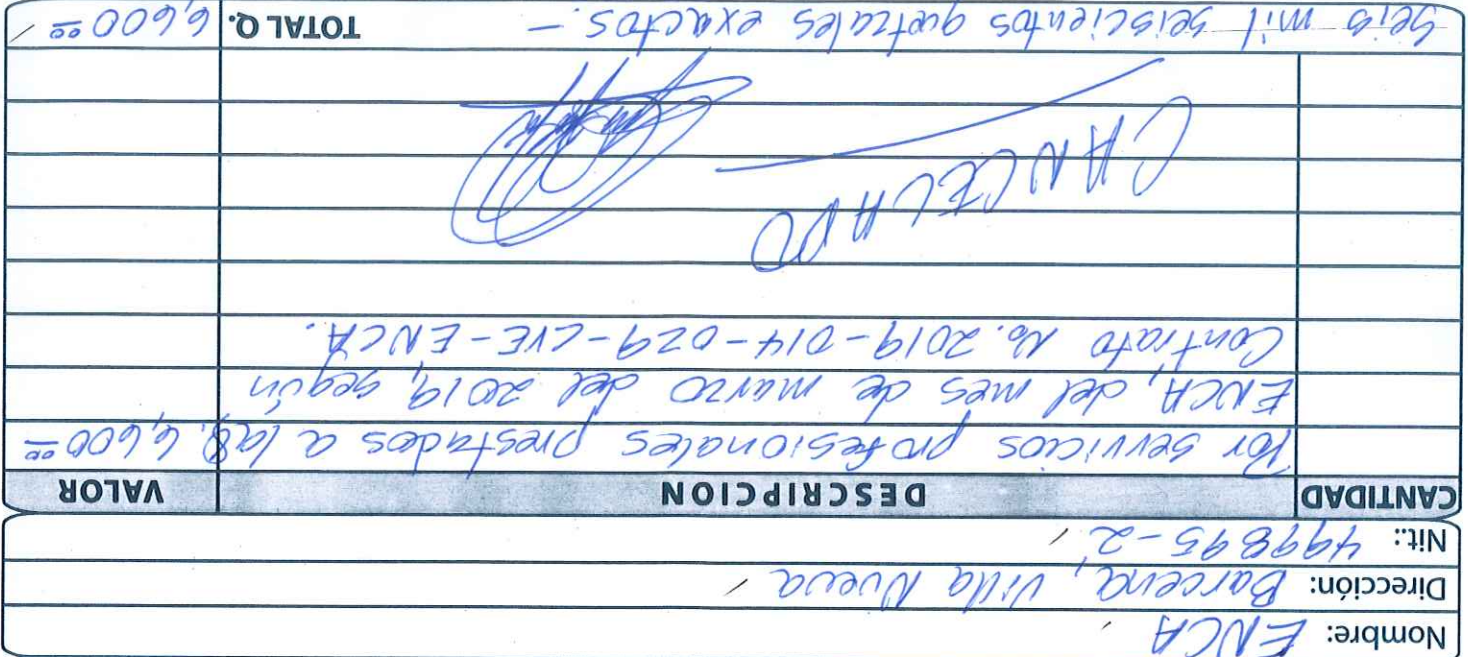 Nombre: ENCA
Dirección: Barcena, Villa Nueva
Nit.: 499895-2
CANTIDAD DESCRIPCION VALOR
Por servicios profesionales prestados a la Q. 6,600.00
ENCA, del mes de marzo del 2019, según
Contrato No. 2019-014-029-CVE-ENCA.
CANCELADO
Seis mil seiscientos quetzales exactos.- TOTAL Q. 6,600.00